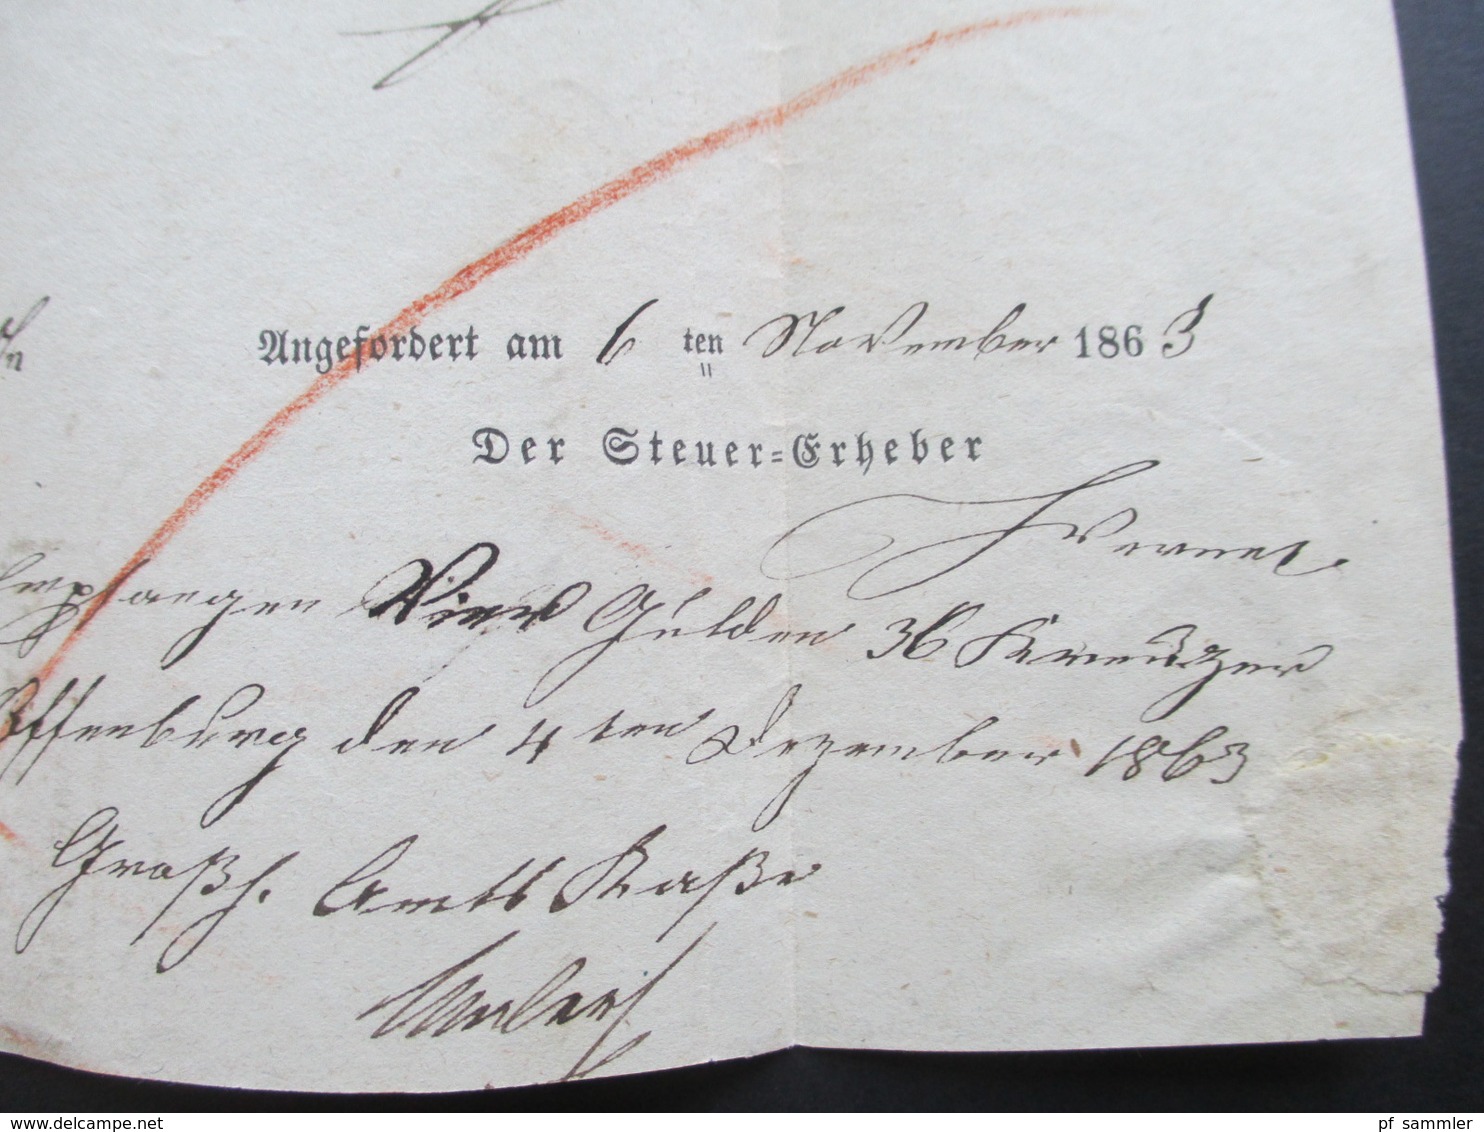 Angefordert am 6 ten November 1863
Der Steuer=Erheber
Empfangen Vier Gulden 36 Kreuzer
Offenburg den 4ten Dezember 1863
Großh. Amts Kaße
www.delcampe.net
pf_sammler